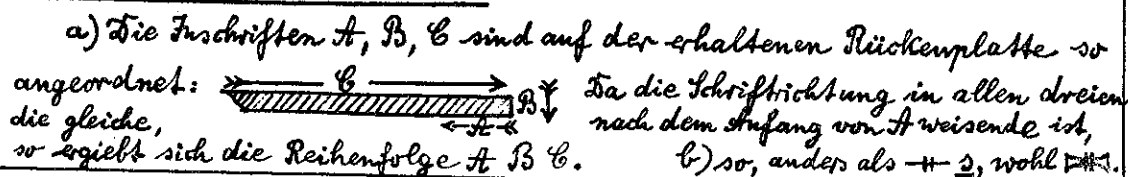 a) Die Inschriften A, B, C sind auf der erhaltenen Rückenplatte so
angeordnet: C B A Da die Schriftrichtung in allen dreien
die gleiche, nach dem Anfang von A weisende ist,
so ergiebt sich die Reihenfolge A B C. b) so, anders als s, wohl